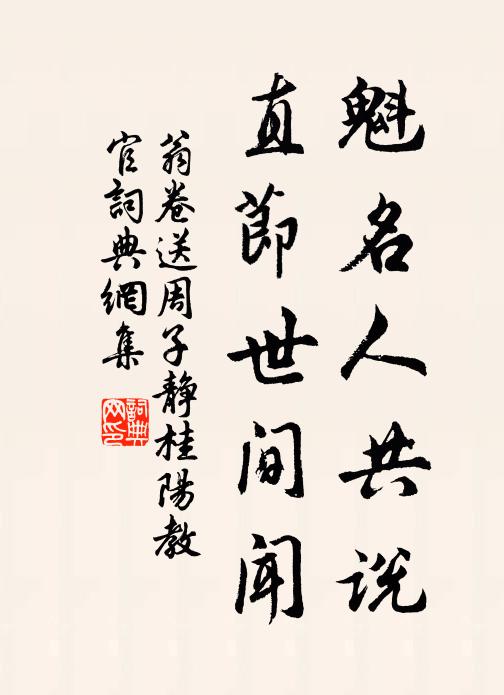 魁名人共説
直節世間聞
翁卷送周子靜桂陽教
官詞典網集
詞典
网印